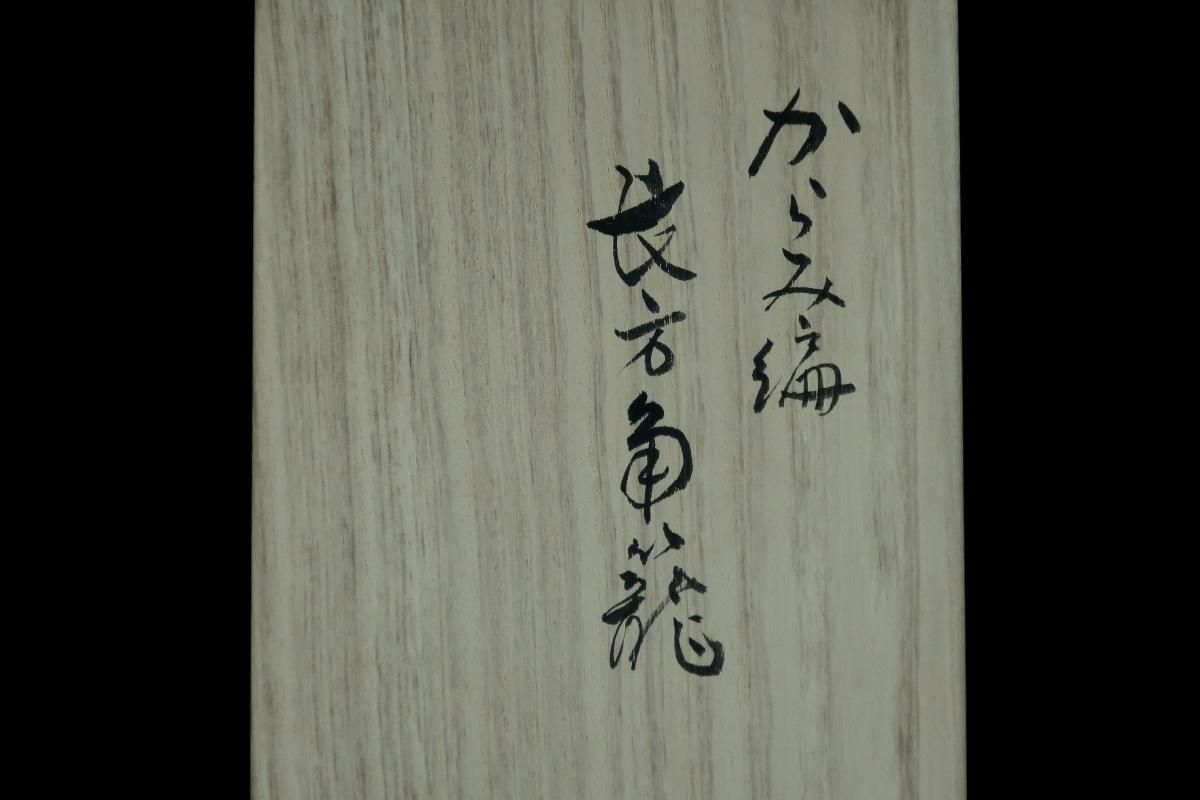 からみ編
長方角籠